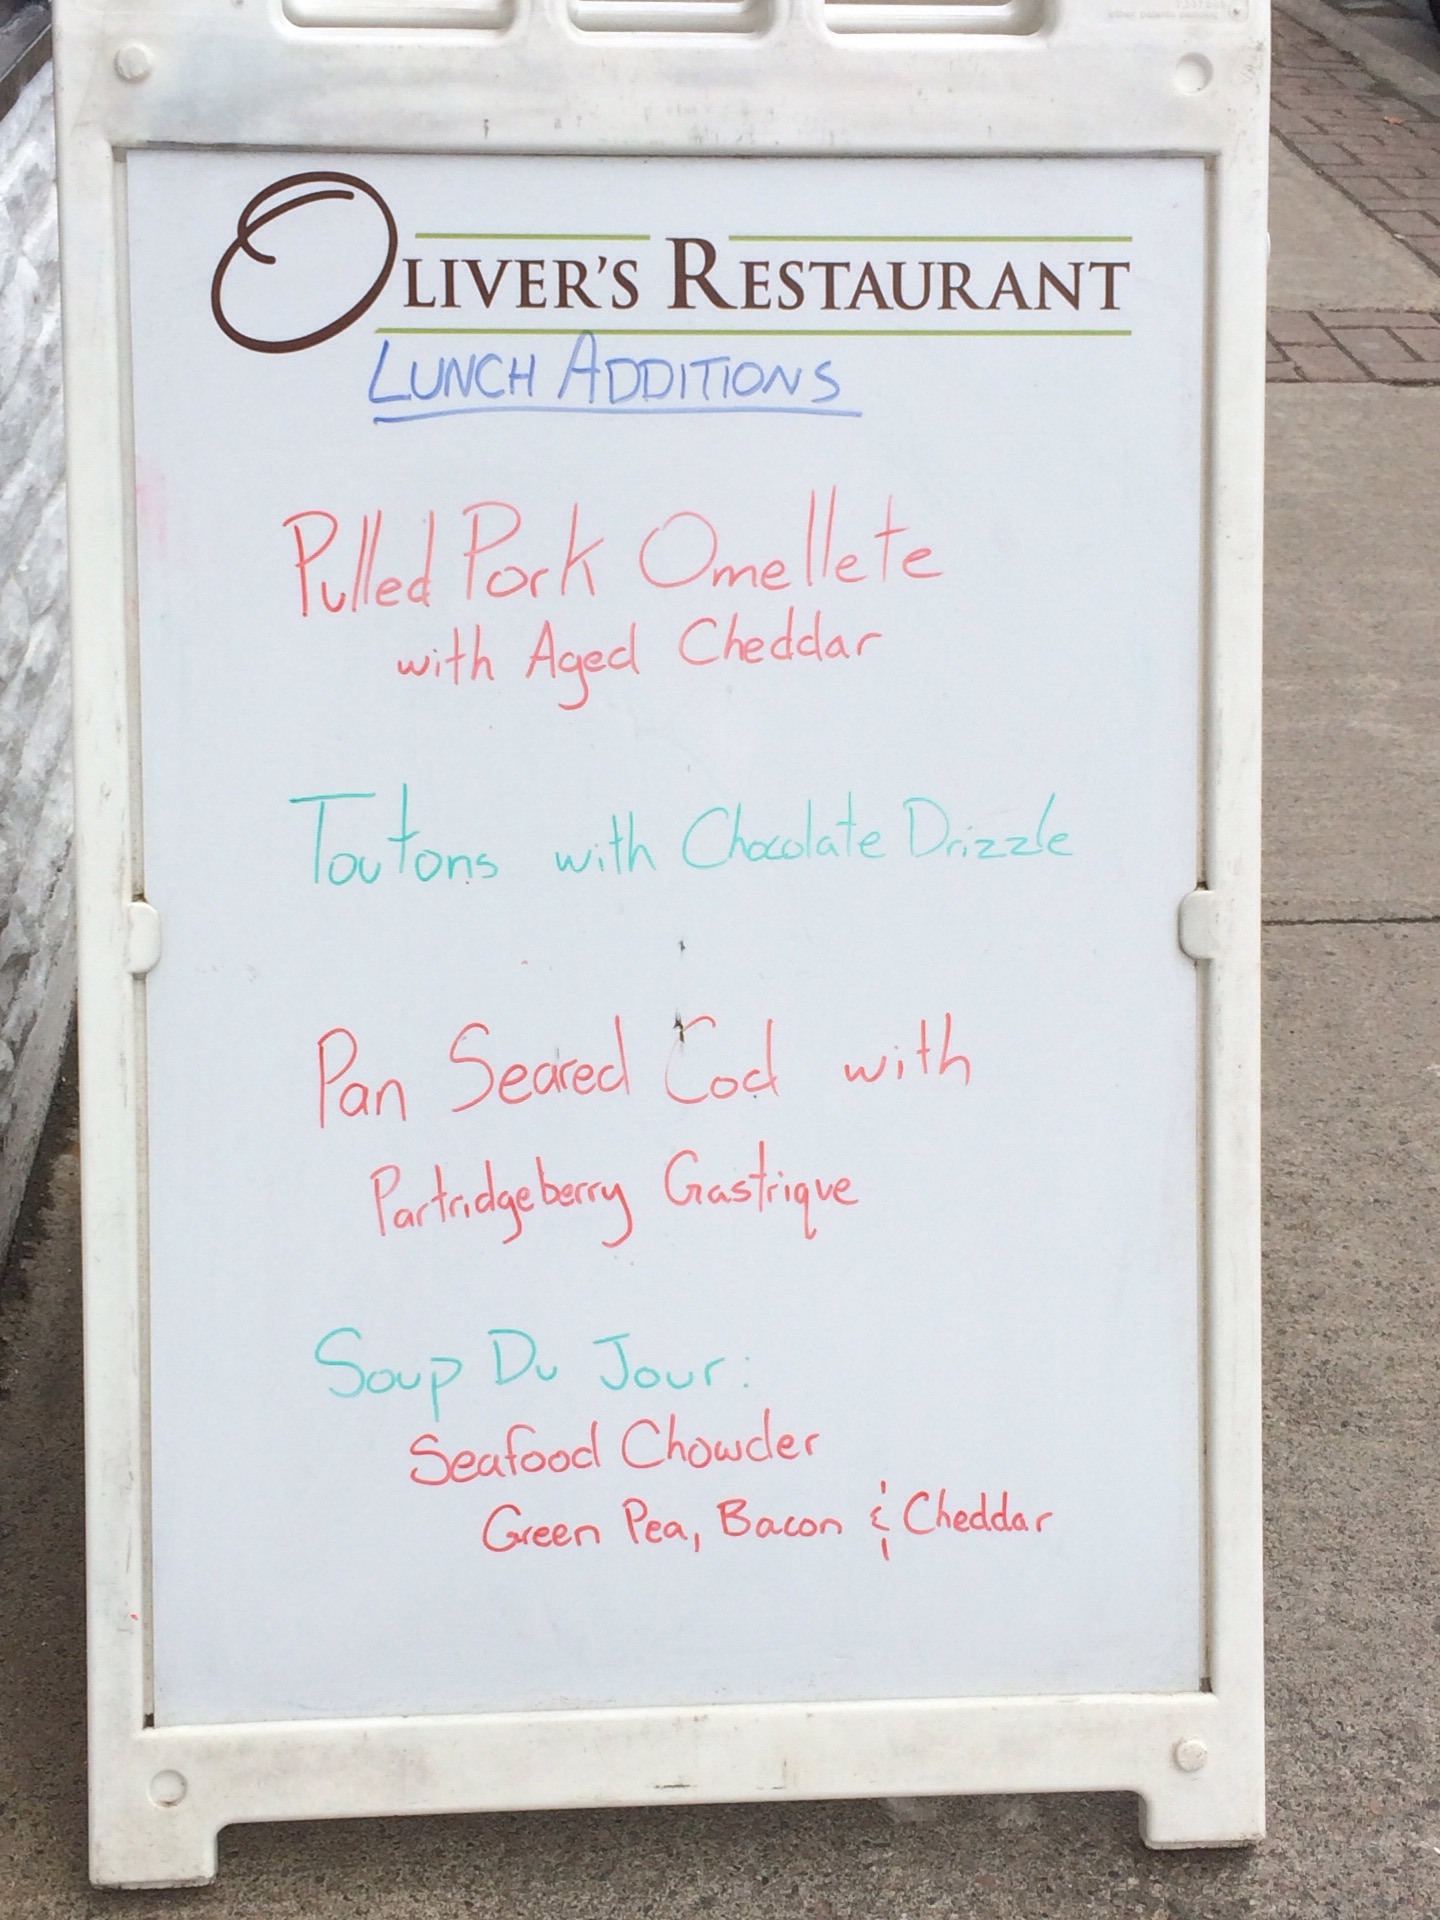 OLIVER'S RESTAURANT
LUNCH ADDITIONS
Pulled Pork Omellete
with Aged Cheddar
Toutons with Chocolate Drizzle
Pan Seared Cod with
Partridgeberry Gastrique
Soup Du Jour:
Seafood Chowder
Green Pea, Bacon & Cheddar